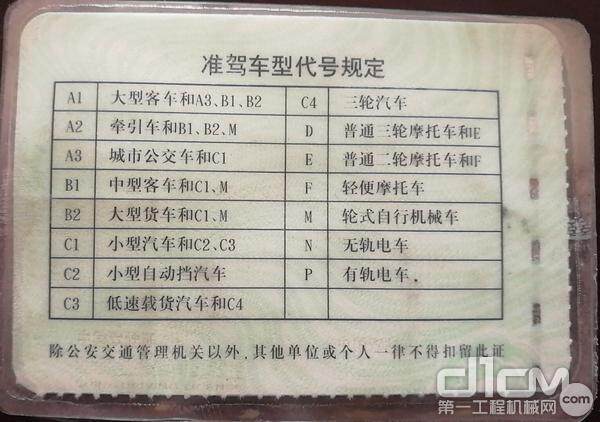 准驾车型代号规定
A1 大型客车和A3、B1、B2 C4 三轮汽车
A2 牵引车和B1、B2、M D 普通三轮摩托车和E
A3 城市公交车和C1 E 普通二轮摩托车和F
B1 中型客车和C1、M F 轻便摩托车
B2 大型货车和C1、M M 轮式自行机械车
C1 小型汽车和C2、C3 N 无轨电车
C2 小型自动挡汽车 P 有轨电车
C3 低速载货汽车和C4
除公安交通管理机关以外,其他单位或个人一律不得扣留此证
d1cm .com
第一工程机械网